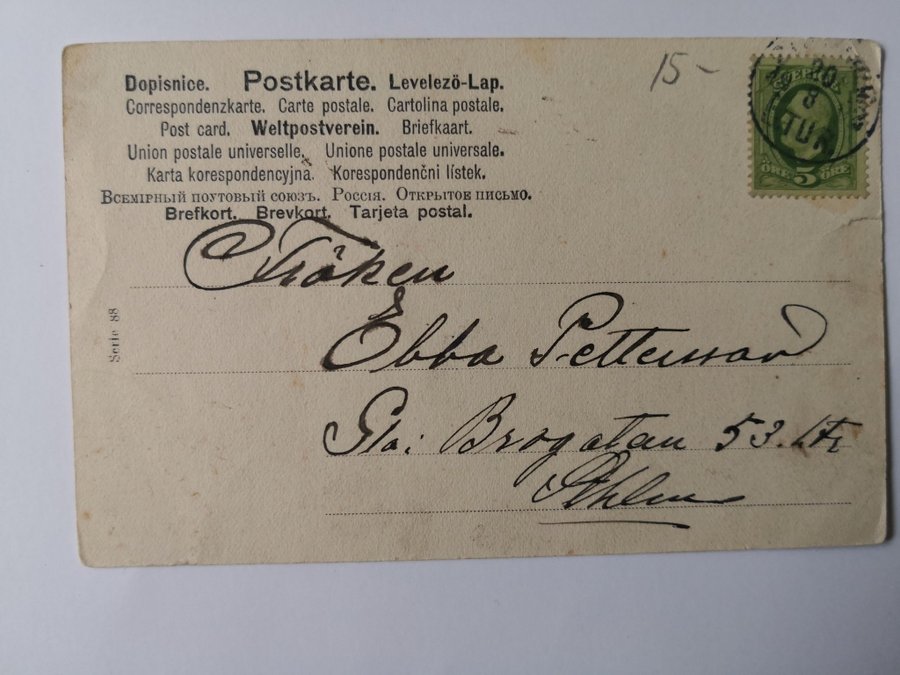 15-
SVERIGE
20
8
TUR
5
ÖRE ÖRE
Dopisnice. Postkarte. Levelezö-Lap.
Correspondenzkarte. Carte postale. Cartolina postale.
Post card. Weltpostverein. Briefkaart.
Union postale universelle. Unione postale universale.
Karta korespondencyjna. Korespondenčni lístek.
Всемірный поутовый союзъ. Россія. Открытое письмо.
Brefkort. Brevkort. Tarjeta postal.
Fröken
Ebba Pettersson
Gla: Brogatan 53.
Sthlm
Serie 88